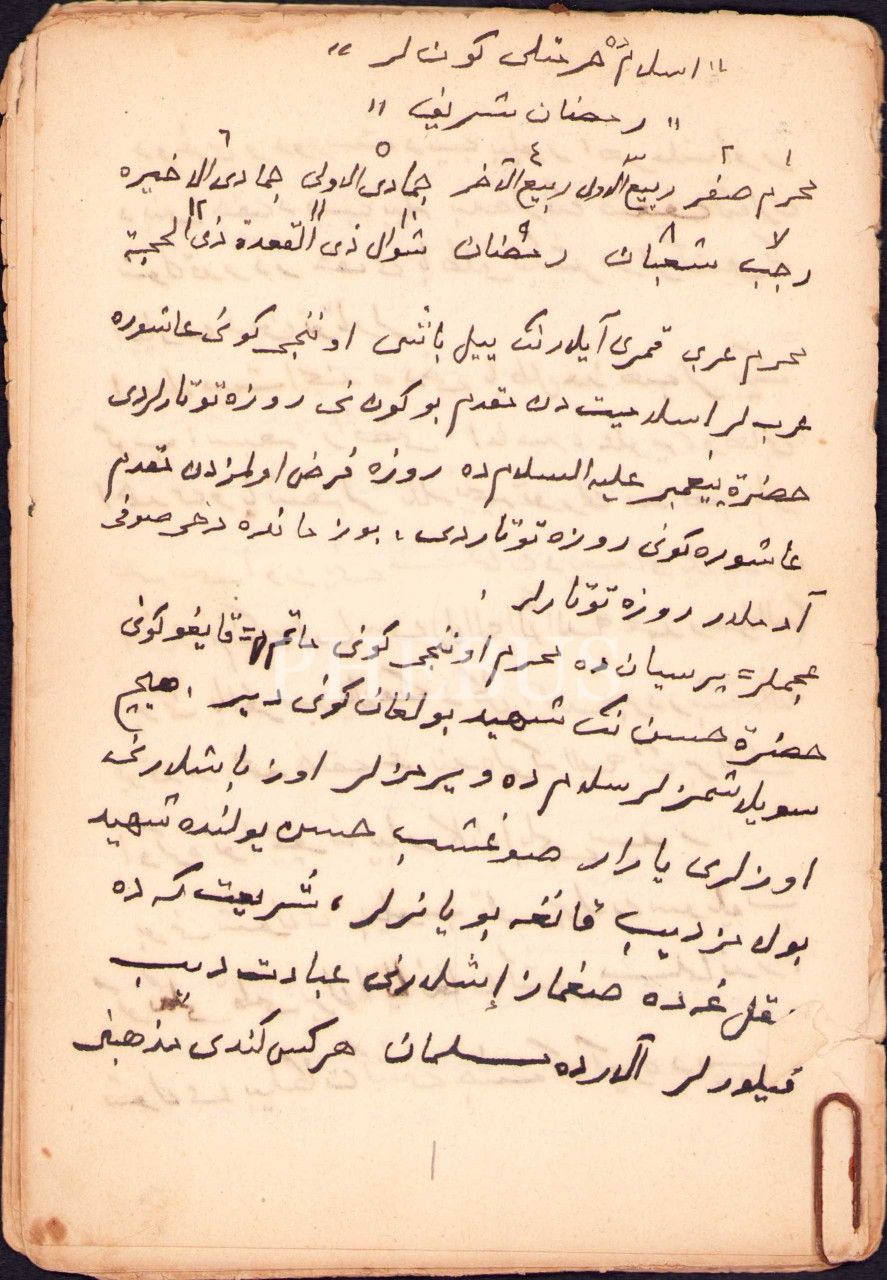 " اسلام ده حرمتلی کون لر "
" رمضان شریف "
١ ٢ ٣ ٤ ٥ ٦
محرم صفر ربیع الاول ربیع الآخر جمادی الاولی جمادی الاخیره
٧ ٨ ٩ ١٠ ١١ ١٢
رجب شعبان رمضان شوال ذی القعدة ذی الحجة
محرم عربی قمری آیلارنک ییل باشی اوننجی کونی عاشوره
عرب لر اسلامیت دن مقدم بو کون نی روزه توتارلردی
حضرة پیغمبر علیه السلام ده روزه فرض اولمزدن مقدم
عاشوره کونی روزه توتاردی ، بو زمانده دخی صوفی
آدملار روزه توتارلر .
عجملر = پرسیان ده محرم اوننجی کونی ماتم = قایغو کونی
حضرة حسین نک شهید بولغان کونی دیر . هیچ
سویلاشمزلر سلام ده ویرمزلر اوز باشلارنی
اوزلری یارار صوغشب حسین یولنده شهید
بولامز دیب قانغه بویانرلر ، شریعت که ده
عقل غه ده صغماز إشلارنی عبادت دیب
قیلورلر آلارده مسلمان هرکس کندی مذهبنی
١
PHEBUS